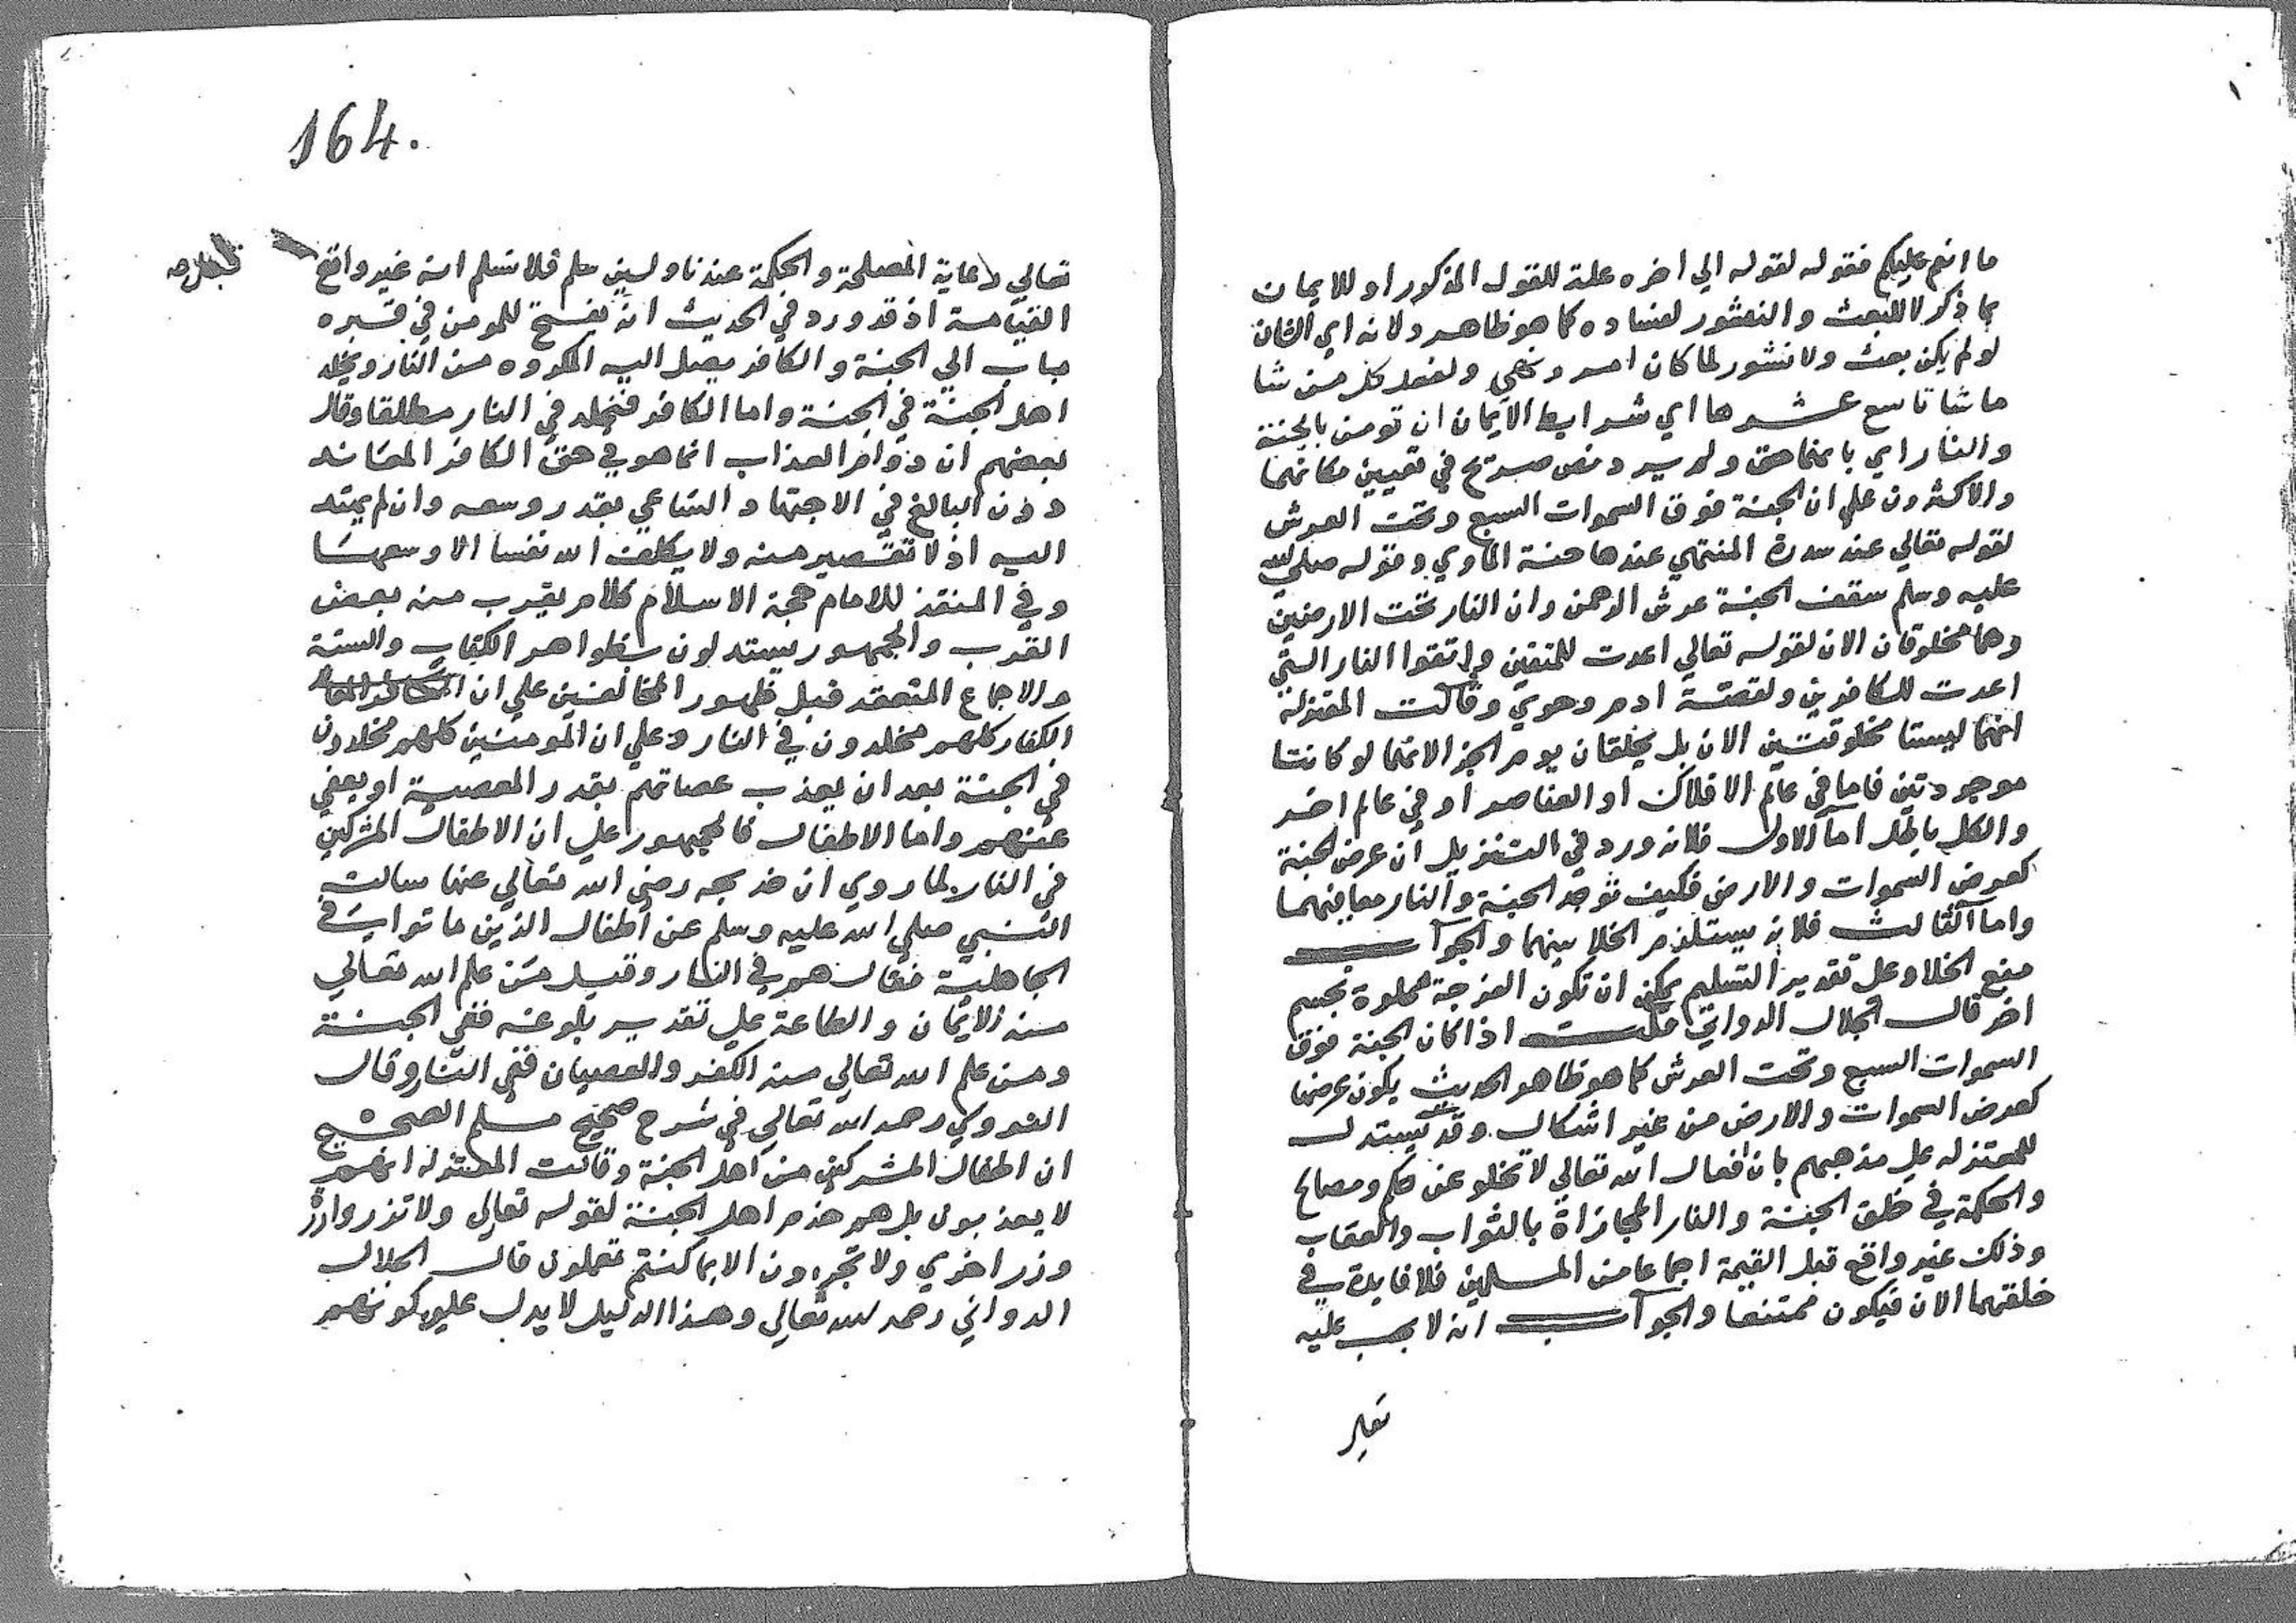 ما انتم عليكم فقوله لقوله الي اخره علة للقول المذكور او للايمان
بما ذكر لا للبعث والنشور لفساده كما هو ظاهر ولانه اي الشان
لو لم يكن بعث ولا نشور لما كان امر ونهي ولفعل كل من شا
ما شا تاسع عشرها اي شرايط الايمان ان تومن بالجنة
والنار اي بانهما حق ولم يرد نص صريح في تعيين مكانهما
والاكثرون علي ان الجنة فوق السموات السبع وتحت العرش
لقوله تعالي عند سدرة المنتهي عندها جنة الماوي وقوله صلي الله
عليه وسلم سقف الجنة عرش الرحمن وان النار تحت الارضين
وهما مخلوقان الان لقوله تعالي اعدت للمتقين واتقوا النار التي
اعدت للكافرين ولقصة ادم وحوي وقالت المعتزلة
انهما ليستا مخلوقتين الان بل يخلقان يوم الجزا لانهما لو كانتا
موجودتين فاما في عالم الافلاك او العناصر او في عالم اخر
والكل باطل اما الاول فلانه ورد في التنزيل ان عرض الجنة
كعرض السموات والارض فكيف توجد الجنة والنار معا فيهما
واما الثالث فلانه يستلزم الخلا بينهما والجواب
منع الخلا وعلي تقدير التسليم يمكن ان تكون الفرجة مملوة بجسم
اخر قال الجلال الدواني قلت اذا كان الجنة فوق
السموات السبع وتحت العرش كما هو ظاهر الحديث يكون عرضها
كعرض السموات والارض من غير اشكال وقد يستدل
للمعتزله علي مذهبهم بان افعال الله تعالي لا تخلو عن حكم ومصالح
والحكمة في خلق الجنة والنار المجازاة بالثواب والعقاب
وذلك غير واقع قبل القيمة اجماعا من المسلمين فلا فايدة في
خلقتهما الان فيكون ممتنعا والجواب انه لا يجب عليه
164.
تعالي رعاية المصلحة والحكمة عندنا ولين سلم فلا نسلم انه غير واقع
القيامة اذ قد ورد في الحديث انه يفتح للمومن في قبره
باب الي الجنة والكافر يصل اليه المكروه من النار ويخلد
اهل الجنة في الجنة واما الكافر فيخلد في النار مطلقا وقال
بعضهم ان دوام العذاب انما هو في حق الكافر المعاند
دون البالغ في الاجتهاد الساعي بقدر وسعه وان لم يهتد
اليه اذ لا تقصير منه ولا يكلف الله نفسا الا وسعها
وفي المنقذ للامام حجة الاسلام كلام يقرب منه بعض
القرب والجمهور يستدلون بظواهر الكتاب والسنة
والاجماع المنعقد قبل ظهور المخالفين علي ان
الكفار كلهم مخلدون في النار وعلي ان المومنين كلهم مخلدون
في الجنة بعد ان يعذب عصاتهم بقدر المعصية او يعفي
عنهم واما الاطفال فالجمهور علي ان الاطفال المشركين
في النار لما روي ان خديجه رضي الله تعالي عنها سالت
النبي صلي الله عليه وسلم عن اطفال الذين ماتوا في
الجاهلية فقال هم في النار وقيل من علم الله تعالي
منه الايمان والطاعة علي تقدير بلوغه ففي الجنة
ومن علم الله تعالي منه الكفر والعصيان ففي النار وقال
النووي رحمه الله تعالي في شرح صحيح مسلم الصحيح
ان اطفال المشركين من اهل الجنة وقالت المعتزله انهم
لا يعذبون بل هم خدم اهل الجنة لقوله تعالي ولا تزر وازرة
وزر اخري ولا تجزون الا بما كنتم تعملون قال الجلال
الدواني رحمه الله تعالي وهذا الدليل لا يدل علي كونهم